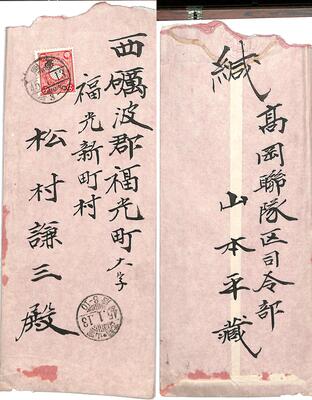 西礪波郡福光町大字
福光新町村
松村謙三殿
45.1.13
45.1.13
緘
高岡聯隊区司令部
山本平藏